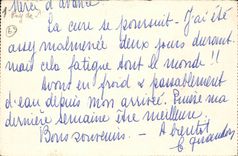 Merci d'avance
La cure se poursuit - J'ai été
assez malmenée deux jours durant
mais cela fatigue tout le monde !!
Avons eu froid & passablement
d'eau depuis mon arrivée. Puisse ma
dernière semaine être meilleure.
Bons souvenirs - A bientôt